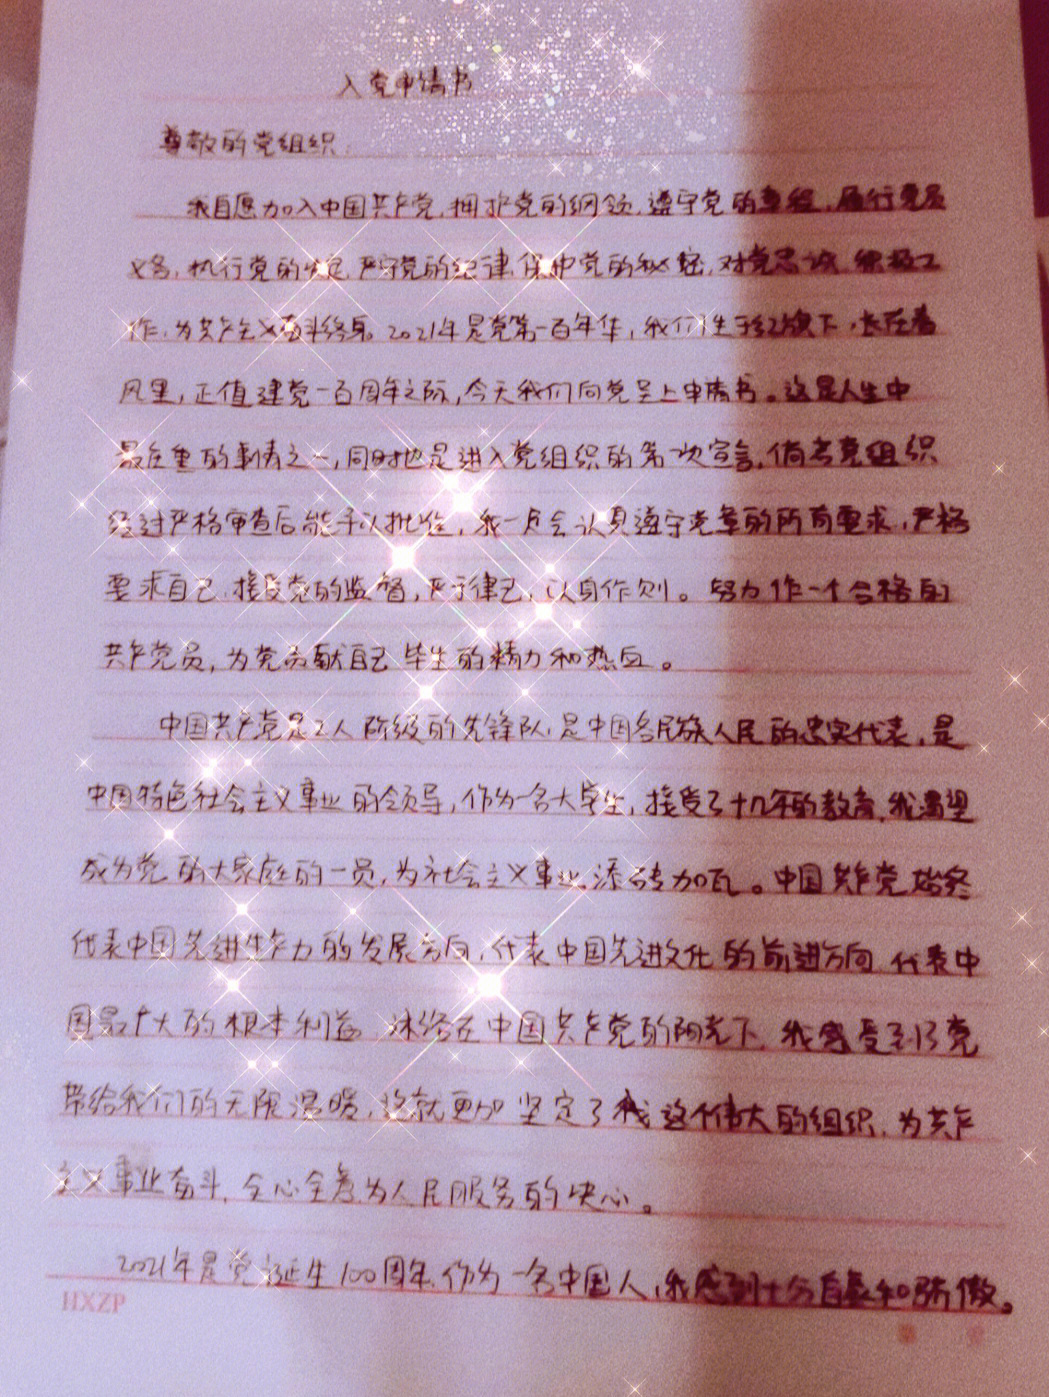 入党申请书
尊敬的党组织:
我自愿加入中国共产党,拥护党的纲领,遵守党的章程,履行党员
义务,执行党的决定,严守党的纪律,保护党的秘密,对党忠诚,积极工
作,为共产主义奋斗终身。2021年是党第一百年华,我们生于红旗下,长在春
风里,正值建党一百周年之际,今天我们向党呈上申请书。这是人生中
最庄重的事情之一,同时也是进入党组织的第一次宣言,倘若党组织
经过严格审查后能予以批准,我一定会认真遵守党章的所有要求,严格
要求自己,接受党的监督,严于律己,以身作则。努力作一个合格的
共产党员,为党贡献自己毕生的精力和热血。
中国共产党是工人阶级的先锋队,是中国各民族人民的忠实代表,是
中国特色社会主义事业的领导,作为一名大学生,接受了十几年的教育,我渴望
成为党的大家庭的一员,为社会主义事业添砖加瓦。中国共产党始终
代表中国先进生产力的发展方向,代表中国先进文化的前进方向,代表中
国最广大的根本利益,沐浴在中国共产党的阳光下,我感受到了党
带给我们的无限温暖,这就更加坚定了我这个伟大的组织,为共产
主义事业奋斗,全心全意为人民服务的决心。
2021年是党诞生100周年,作为一名中国人,我感到十分自豪和骄傲。
HXZP
第 页